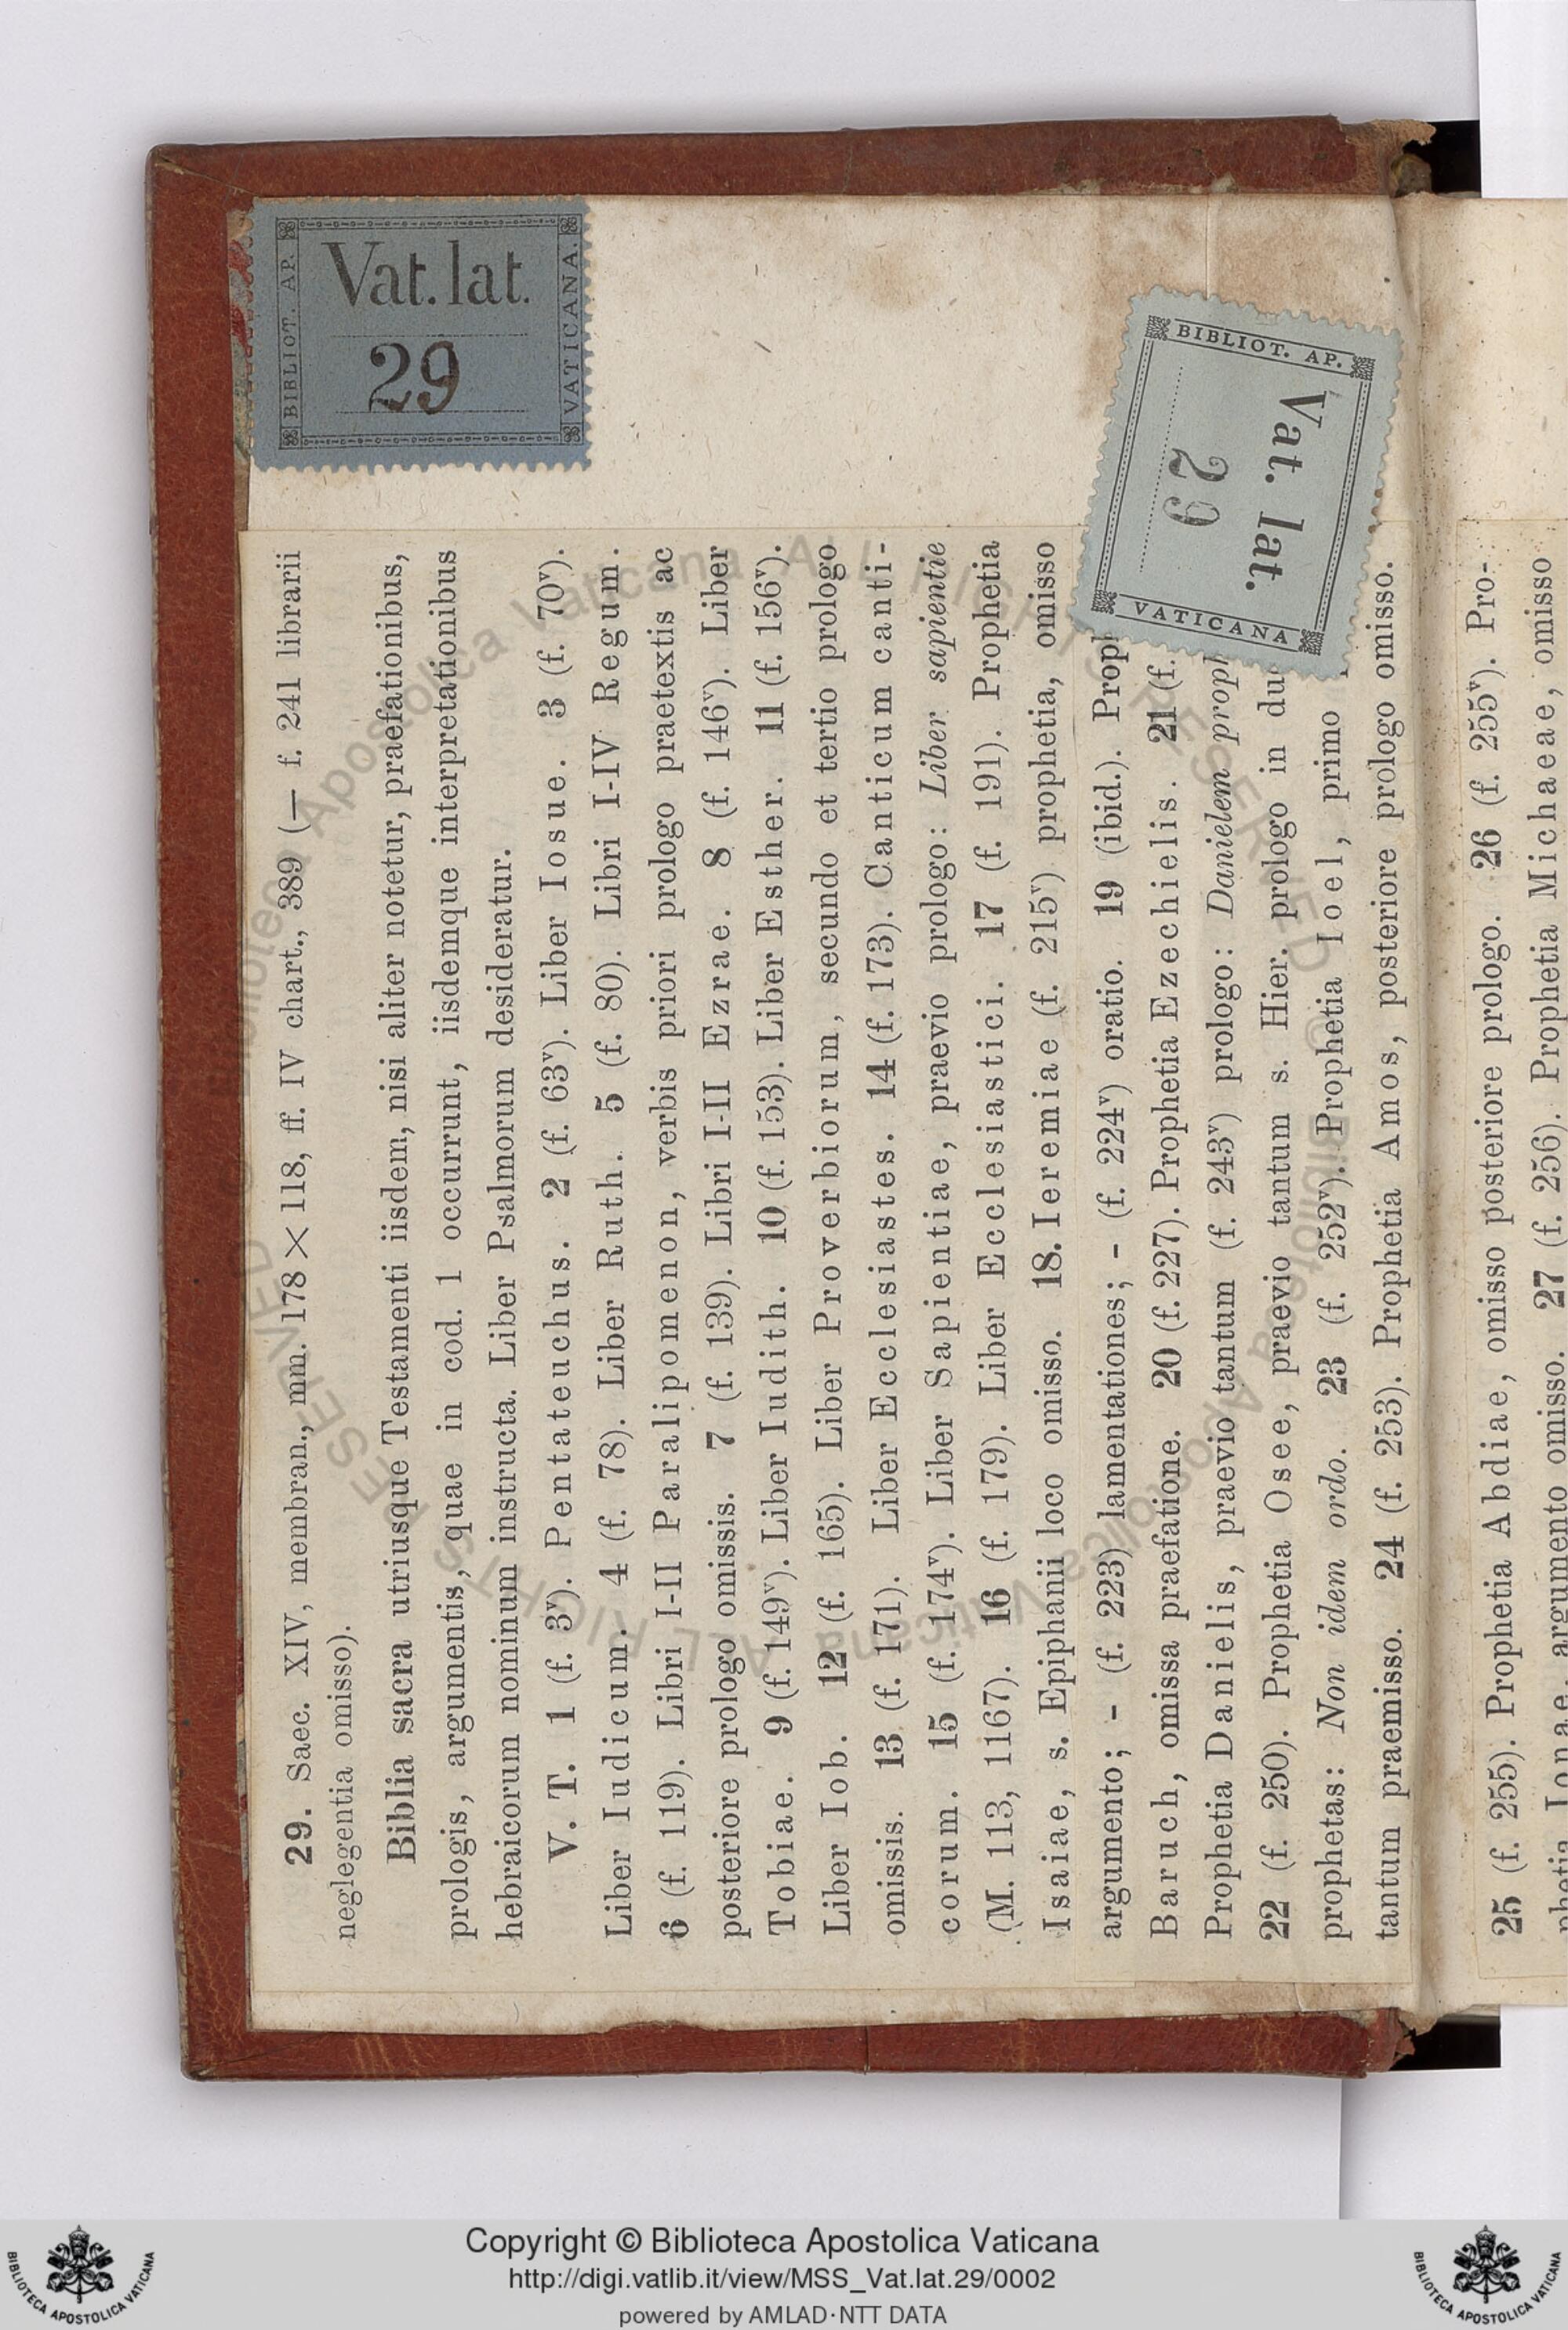 BIBLIOT. AP.
Vat. lat.
29
VATICANA.
BIBLIOT. AP.
Vat. lat.
29
VATICANA
29. Saec. XIV, membran., mm. 178 × 118, ff. IV chart., 389 (— f. 241 librarii
neglegentia omisso).
Biblia sacra utriusque Testamenti iisdem, nisi aliter notetur, praefationibus,
prologis, argumentis, quae in cod. 1 occurrunt, iisdemque interpretationibus
hebraicorum nominum instructa. Liber Psalmorum desideratur.
V. T. 1 (f. 3ᵛ). Pentateuchus. 2 (f. 63ᵛ). Liber Iosue. 3 (f. 70ᵛ).
Liber Iudicum. 4 (f. 78). Liber Ruth. 5 (f. 80). Libri I-IV Regum.
6 (f. 119). Libri I-II Paralipomenon, verbis priori prologo praetextis ac
posteriore prologo omissis. 7 (f. 139). Libri I-II Ezrae. 8 (f. 146ᵛ). Liber
Tobiae. 9 (f. 149ᵛ). Liber Iudith. 10 (f. 153). Liber Esther. 11 (f. 156ᵛ).
Liber Iob. 12 (f. 165). Liber Proverbiorum, secundo et tertio prologo
omissis. 13 (f. 171). Liber Ecclesiastes. 14 (f. 173). Canticum canti-
corum. 15 (f. 174ᵛ). Liber Sapientiae, praevio prologo: Liber sapientie
(M. 113, 1167). 16 (f. 179). Liber Ecclesiastici. 17 (f. 191). Prophetia
Isaiae, s. Epiphanii loco omisso. 18. Ieremiae (f. 215ᵛ) prophetia, omisso
argumento; - (f. 223) lamentationes; - (f. 224ᵛ) oratio. 19 (ibid.). Proph
Baruch, omissa praefatione. 20 (f. 227). Prophetia Ezechielis. 21 (f.
Prophetia Danielis, praevio tantum (f. 243ᵛ) prologo: Danielem proph
22 (f. 250). Prophetia Osee, praevio tantum s. Hier. prologo in du
prophetas: Non idem ordo. 23 (f. 252ᵛ). Prophetia Ioel, primo
tantum praemisso. 24 (f. 253). Prophetia Amos, posteriore prologo omisso.
25 (f. 255). Prophetia Abdiae, omisso posteriore prologo. 26 (f. 255ᵛ). Pro-
phetia Ionae, argumento omisso. 27 (f. 256). Prophetia Michaeae, omisso
Copyright © Biblioteca Apostolica Vaticana
http://digi.vatlib.it/view/MSS_Vat.lat.29/0002
powered by AMLAD·NTT DATA
BIBLIOTECA APOSTOLICA VATICANA
BIBLIOTECA APOSTOLICA VATICANA